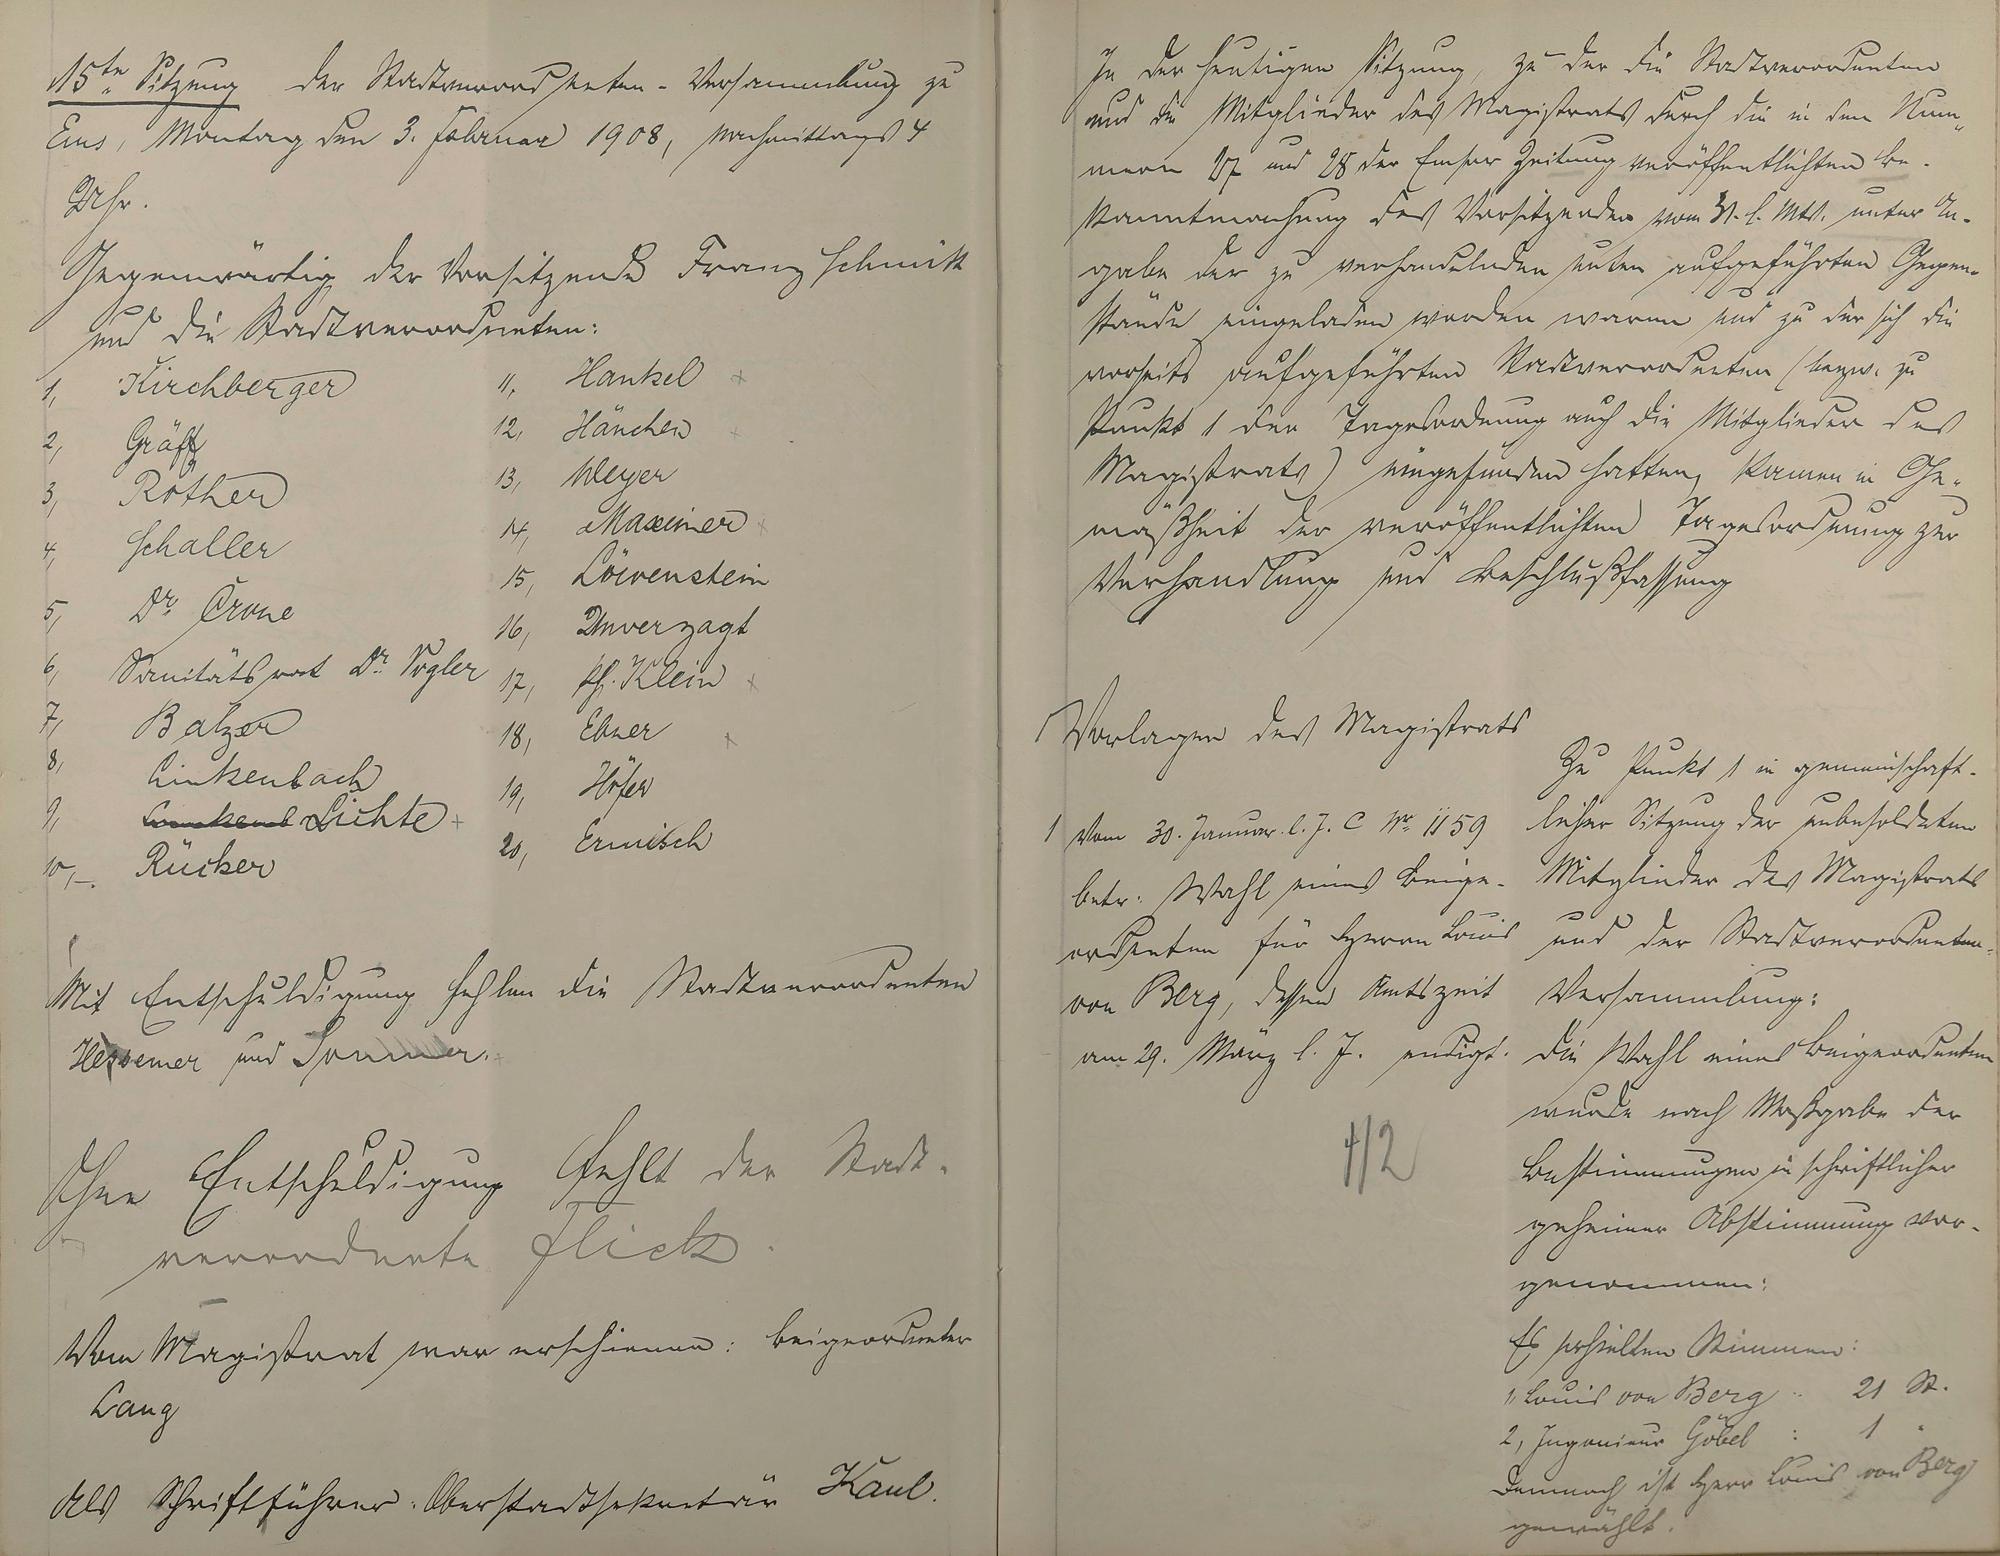 15te. Sitzung der Stadtverordneten-Versammlung zu
Ems, Montag den 3. Februar 1908, nachmittags 4
Uhr.
Gegenwärtig der Vorsitzende Franz Schmitt
und die Stadtverordneten:
1, Kirchberger
2, Gräf
3, Rother
4, Schaller
5, Dr. Crone
6, Sanitätsrat Dr. Vogler
7, Balzer
8, Linkenbach
9, Lichte +
10, Rücker
11, Hankel +
12, Hänchen +
13, Meyer
14, Maxeiner +
15, Löwenstein
16, Unverzagt
17, Ph. Klein +
18, Ebner +
19, Höfer
20, Ermisch
Mit Entschuldigung fehlen die Stadtverordneten
Hessemer und Sommer.
Ohne Entschuldigung fehlt der Stadt-
verordnete Flick.
Vom Magistrat war erschienen: Beigeordneter
Lang
Als Schriftführer: Oberstadtsekretär Kaul.
In der heutigen Sitzung, zu der die Stadtverordneten
und die Mitglieder des Magistrats durch die in den Num-
mern 27 und 28 der Emser Zeitung veröffentlichten Be-
kanntmachung des Vorsitzenden vom 31. l. Mts. unter An-
gabe der zu verhandelnden unten aufgeführten Gegen-
stände eingeladen worden waren und zu der sich die
vorseits aufgeführten Stadtverordneten (bezw. zu
Punkt 1 der Tagesordnung auch die Mitglieder des
Magistrats) eingefunden hatten, kamen in Ge-
mäßheit der veröffentlichten Tagesordnung zur
Verhandlung und Beschlußfassung
Vorlagen des Magistrats
1 vom 30. Januar l. J. C Nr. 1159
betr. Wahl eines Beige-
ordneten für Herrn Louis
von Berg, dessen Amtszeit
am 29. März l. J. endigt.
4/2
Zu Punkt 1 in gemeinschaft-
licher Sitzung der unbesoldeten
Mitglieder des Magistrats
und der Stadtverordneten-
Versammlung:
Die Wahl eines Beigeordneten
wurde nach Maßgabe der
Bestimmungen in schriftlicher
geheimer Abstimmung vor-
genommen:
Es erhielten Stimmen:
1, Louis von Berg : 21 St.
2, Ingenieur Göbel : 1 "
Demnach ist Herr Louis von Berg
gewählt.